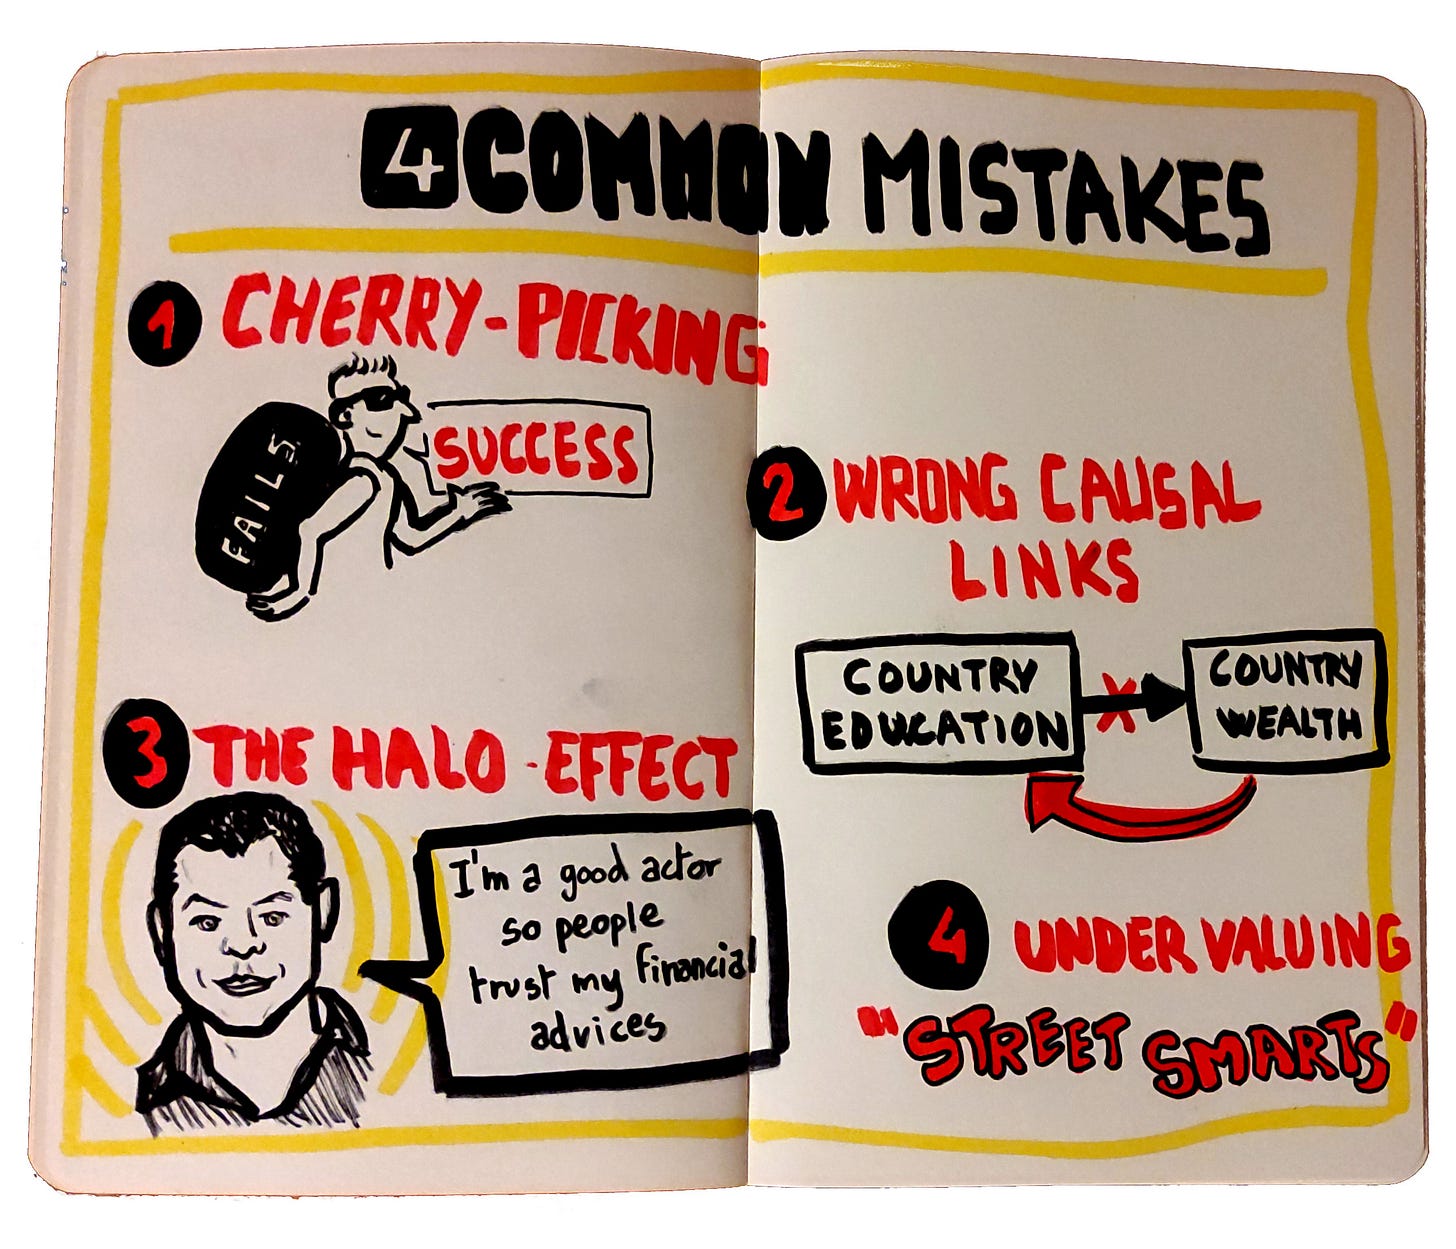 4 COMMON MISTAKES
1 CHERRY-PICKING
FAILS
SUCCESS
2 WRONG CAUSAL
LINKS
COUNTRY
EDUCATION
X
COUNTRY
WEALTH
3 THE HALO-EFFECT
I'm a good actor
so people
trust my financial
advices
4 UNDERVALUING
"STREET SMARTS"